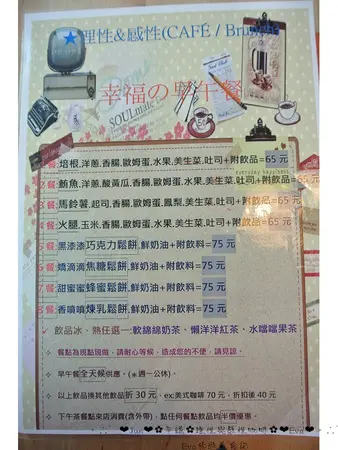 理性&感性(CAFÉ / Brunch)
幸福の早午餐
SOULmate
餐 培根,洋蔥,香腸,歐姆蛋,水果,美生菜,吐司+附飲料=65 元
餐 鮪魚,洋蔥,酸黃瓜,香腸,歐姆蛋,水果,美生菜,吐司+附飲料=65 元
everyday happiness
3 餐 馬鈴薯,起司,香腸,歐姆蛋,鳳梨,美生菜,吐司+附飲料=65 元
餐 火腿,玉米,香腸,歐姆蛋,水果,美生菜,吐司+附飲料=65 元
餐 黑漆漆巧克力鬆餅,鮮奶油+附飲料=75 元
餐 嬌滴滴焦糖鬆餅,鮮奶油+附飲料=75 元
餐 甜蜜蜜蜂蜜鬆餅,鮮奶油+附飲料=75 元
8 餐 香噴噴煉乳鬆餅,鮮奶油+附飲料=75 元
✓ 飲品冰、熱任選一:軟綿綿奶茶、懶洋洋紅茶、水噹噹果茶
❖ 餐點為現點現做,請耐心等候,造成您的不便,請見諒。
早午餐全天候供應。(＊週一公休)。
❖ 以上飲品換其他飲品折 30 元,ex:美式咖啡 70 元,折扣後 40 元
❖ 下午茶餐點來店消費(含外帶),點任何餐點飲品均半價優惠。